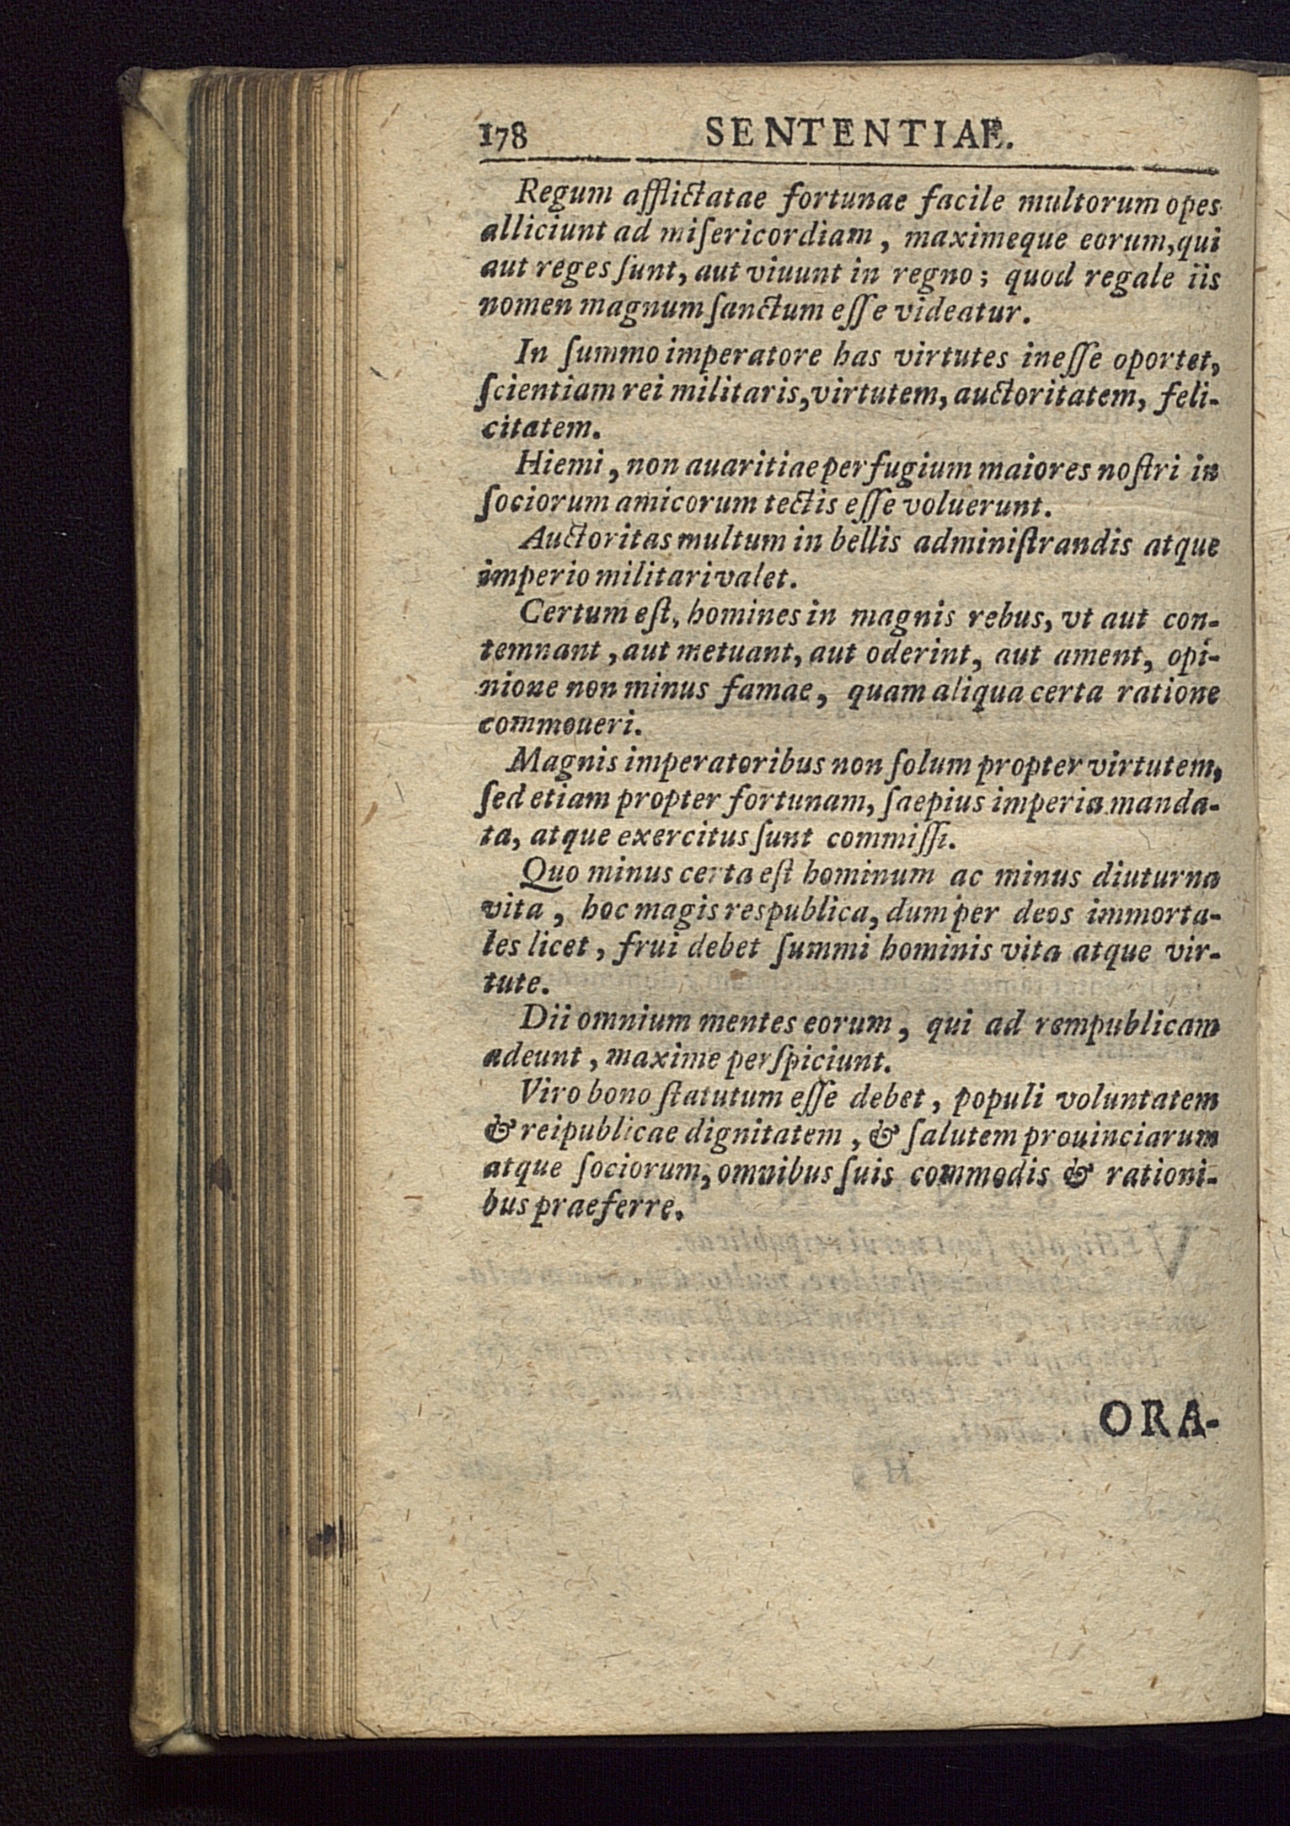 178 SENTENTIAE.
Regum afflictatae fortunae facile multorum opes
alliciunt ad miſericordiam, maximeque eorum, qui
aut reges ſunt, aut viuunt in regno; quod regale iis
nomen magnum ſanctum eſſe videatur.
In ſummo imperatore has virtutes ineſſe oportet,
ſcientiam rei militaris, virtutem, auctoritatem, feli-
citatem.
Hiemi, non auaritiae perfugium maiores noſtri in
ſociorum amicorum tectis eſſe voluerunt.
Auctoritas multum in bellis adminiſtrandis atque
imperio militari valet.
Certum eſt, homines in magnis rebus, vt aut con-
temnant, aut metuant, aut oderint, aut ament, opi-
nione non minus famae, quam aliqua certa ratione
commoueri.
Magnis imperatoribus non ſolum propter virtutem,
ſed etiam propter fortunam, ſaepius imperia manda-
ta, atque exercitus ſunt commiſſi.
Quo minus certa eſt hominum ac minus diuturna
vita, hoc magis respublica, dum per deos immorta-
les licet, frui debet ſummi hominis vita atque vir-
tute.
Dii omnium mentes eorum, qui ad rempublicam
adeunt, maxime perſpiciunt.
Viro bono ſtatutum eſſe debet, populi voluntatem
& reipublicae dignitatem, & ſalutem prouinciarum
atque ſociorum, omnibus ſuis commodis & rationi-
bus praeferre.
ORA-